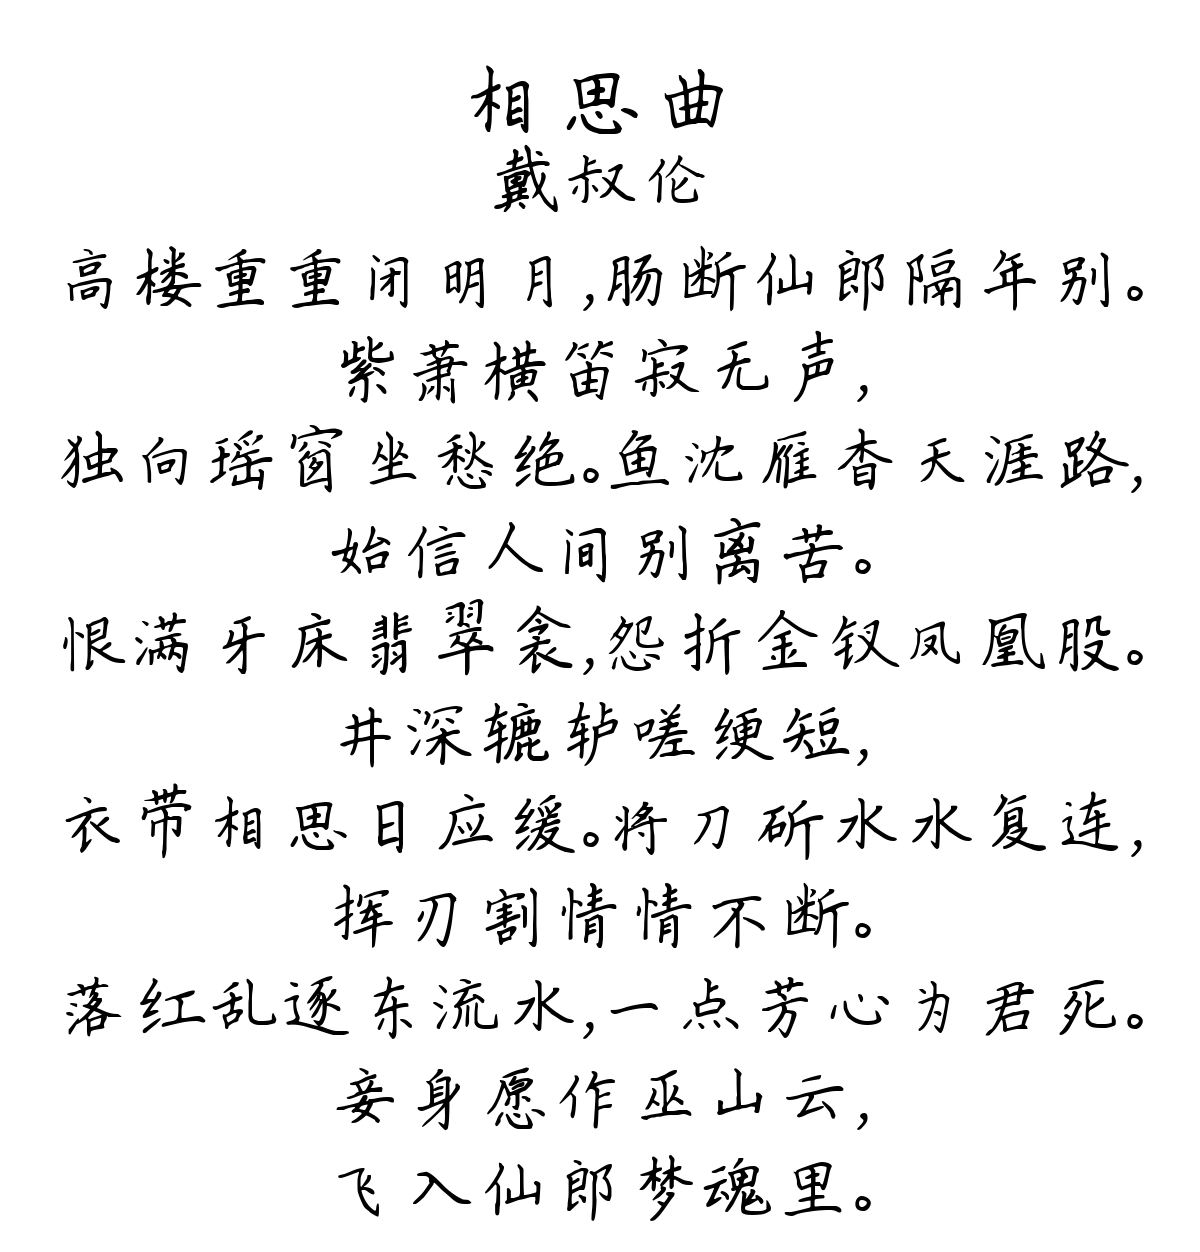 相思曲
戴叔伦
高楼重重闭明月,肠断仙郎隔年别。
紫萧横笛寂无声,
独向瑶窗坐愁绝。鱼沈雁杳天涯路,
始信人间别离苦。
恨满牙床翡翠衾,怨折金钗凤凰股。
井深辘轳嗟绠短,
衣带相思日应缓。将刀斫水水复连,
挥刃割情情不断。
落红乱逐东流水,一点芳心为君死。
妾身愿作巫山云,
飞入仙郎梦魂里。